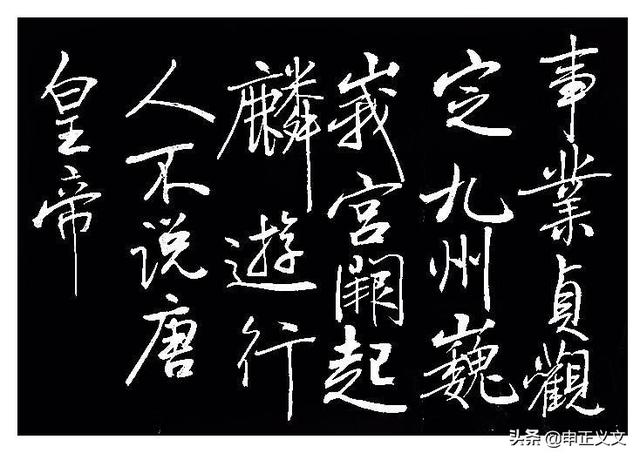 事業貞觀
定九州巍
峩宮闕起
麟遊行
人不说唐
皇帝
头条 @申正义文